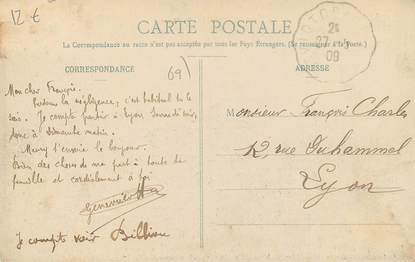 12 €
CARTE POSTALE
La Correspondance au recto n'est pas acceptée par tous les Pays Etrangers. (Se renseigner à la Poste.)
CORRESPONDANCE
69
Mon cher François.
la négligence, c'est habituel tu le
sais. Je compte partir à Lyon Samedi soir,
donc à Dimanche matin.
Maury t'envoie le bonjour.
Bien des choses de ma part à toute ta
famille et cordialement à toi
Je compte voir
ADRESSE
27
09
Monsieur François Charles
12, rue Duhammel
Lyon